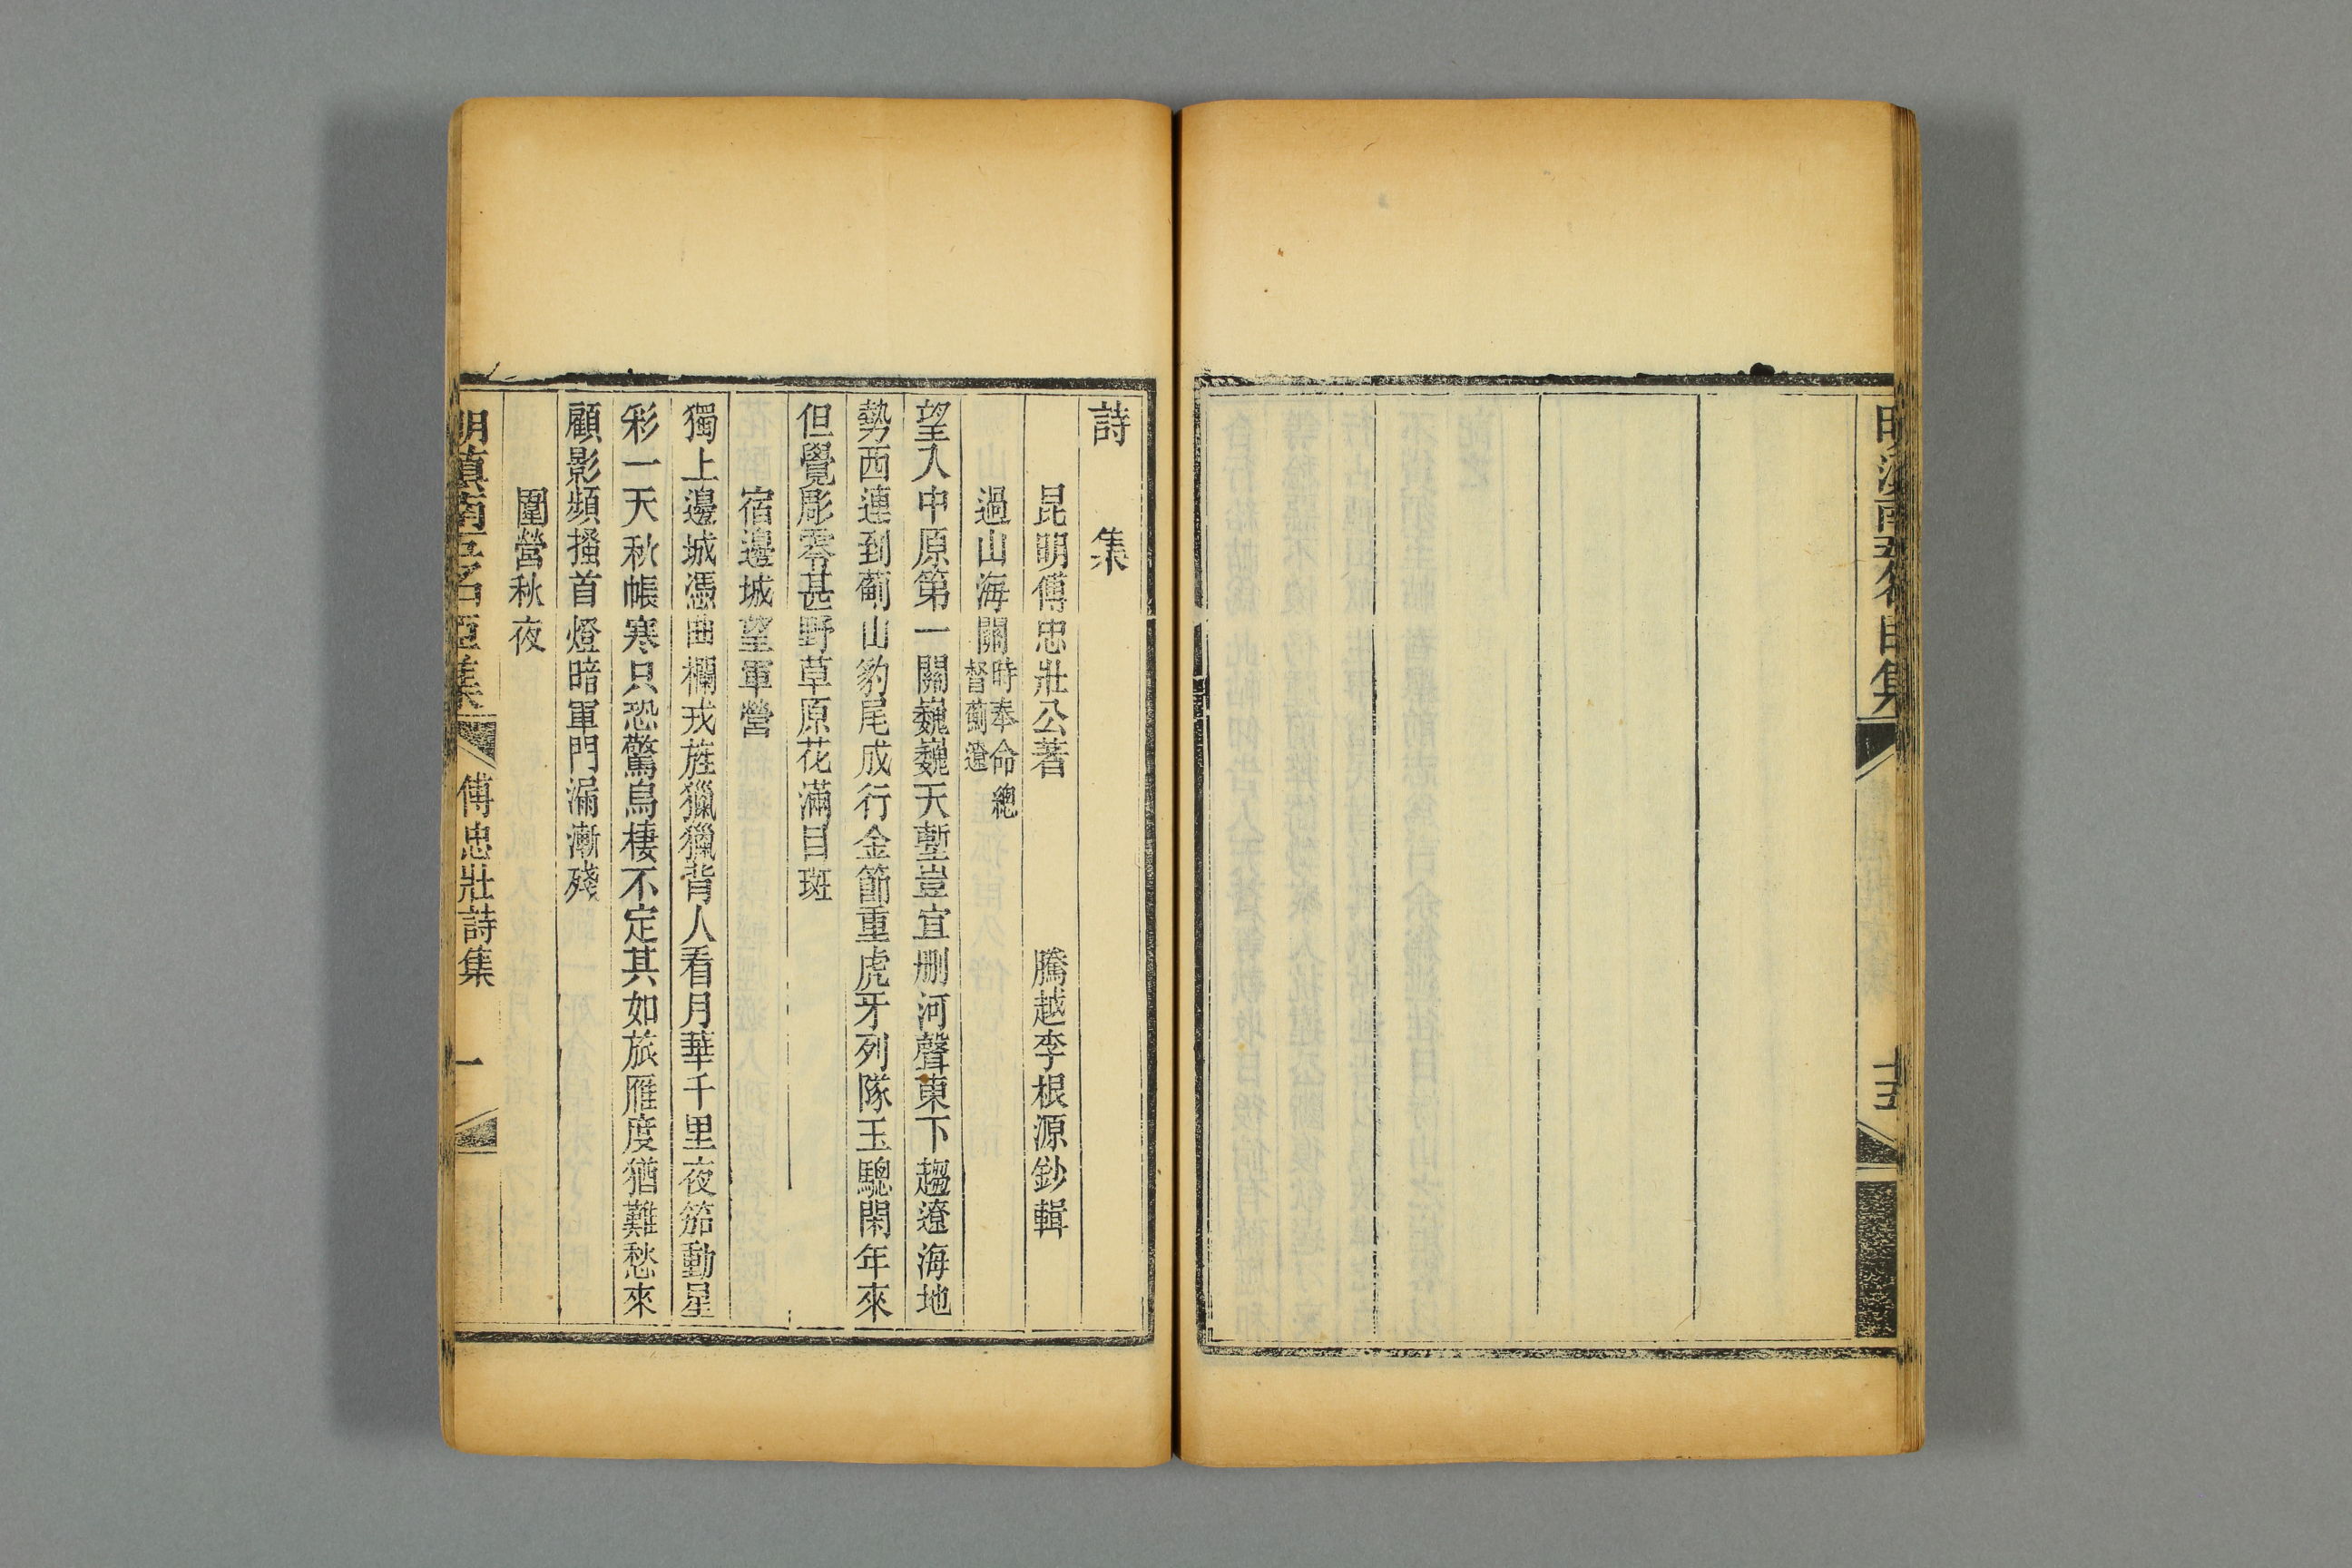 明滇南五名臣集
十五
詩　集
昆明傅忠壯公著　騰越李根源鈔輯
過山海關時奉命總
督薊遼
望入中原第一關巍巍天塹豈宜刪河聲東下趨遼海地
勢西連到薊山豹尾成行金節重虎牙列隊玉驄閑年來
但覺彫零甚野草原花滿目斑
宿邊城望軍營
獨上邊城憑曲欄戎旌獵獵背人看月華千里夜笳動星
彩一天秋帳寒只恐驚烏棲不定其如旅雁度猶難愁來
顧影頻搔首燈暗軍門漏漸殘
圍營秋夜
明滇南五名臣集　傅忠壯詩集　一